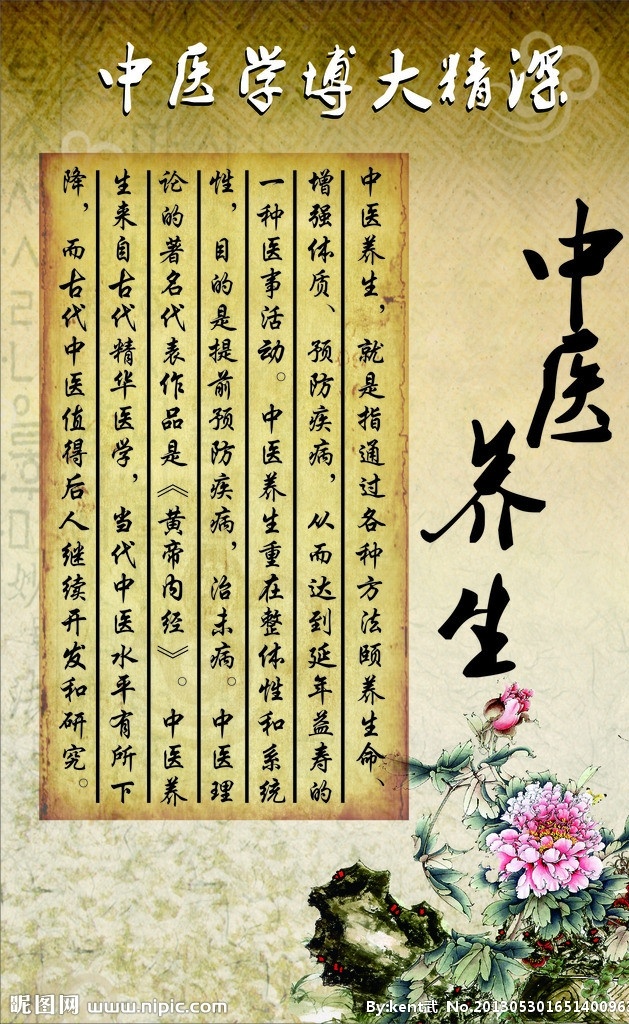 中医学博大精深
中医养生
中医养生，就是指通过各种方法颐养生命、
增强体质、预防疾病，从而达到延年益寿的
一种医事活动。中医养生重在整体性和系统
性，目的是提前预防疾病，治未病。中医理
论的著名代表作品是《黄帝内经》。中医养
生来自古代精华医学，当代中医水平有所下
降，而古代中医值得后人继续开发和研究。
昵图网 www.nipic.com
By:kent武 No.201305301651400963